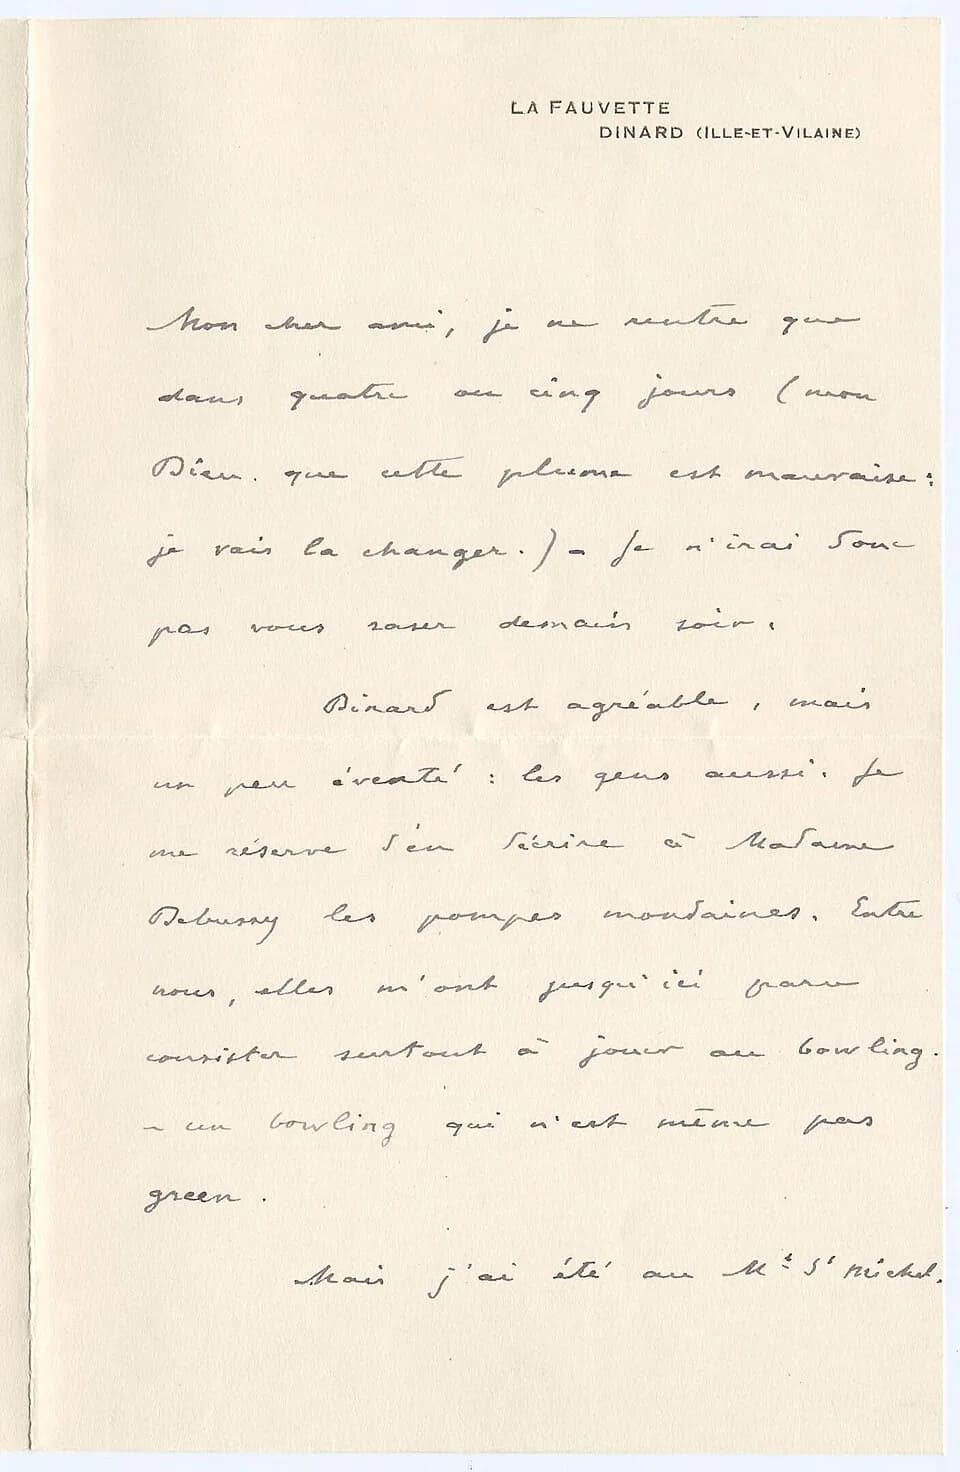 LA FAUVETTE
DINARD (ILLE-ET-VILAINE)
Mon cher ami, je ne rentre que
dans quatre ou cinq jours (mon
Dieu. que cette plume est mauvaise :
je vais la changer.) - Je n'irai donc
pas vous raser demain soir.
Dinard est agréable, mais
un peu éventé : les gens aussi. Je
me réserve d'en décrire à Madame
Debussy les pompes mondaines. Entre
nous, elles m'ont jusqu'ici paru
consister surtout à jouer au bowling.
- un bowling qui n'est même pas
green.
Mais j'ai été au Mt St Michel.